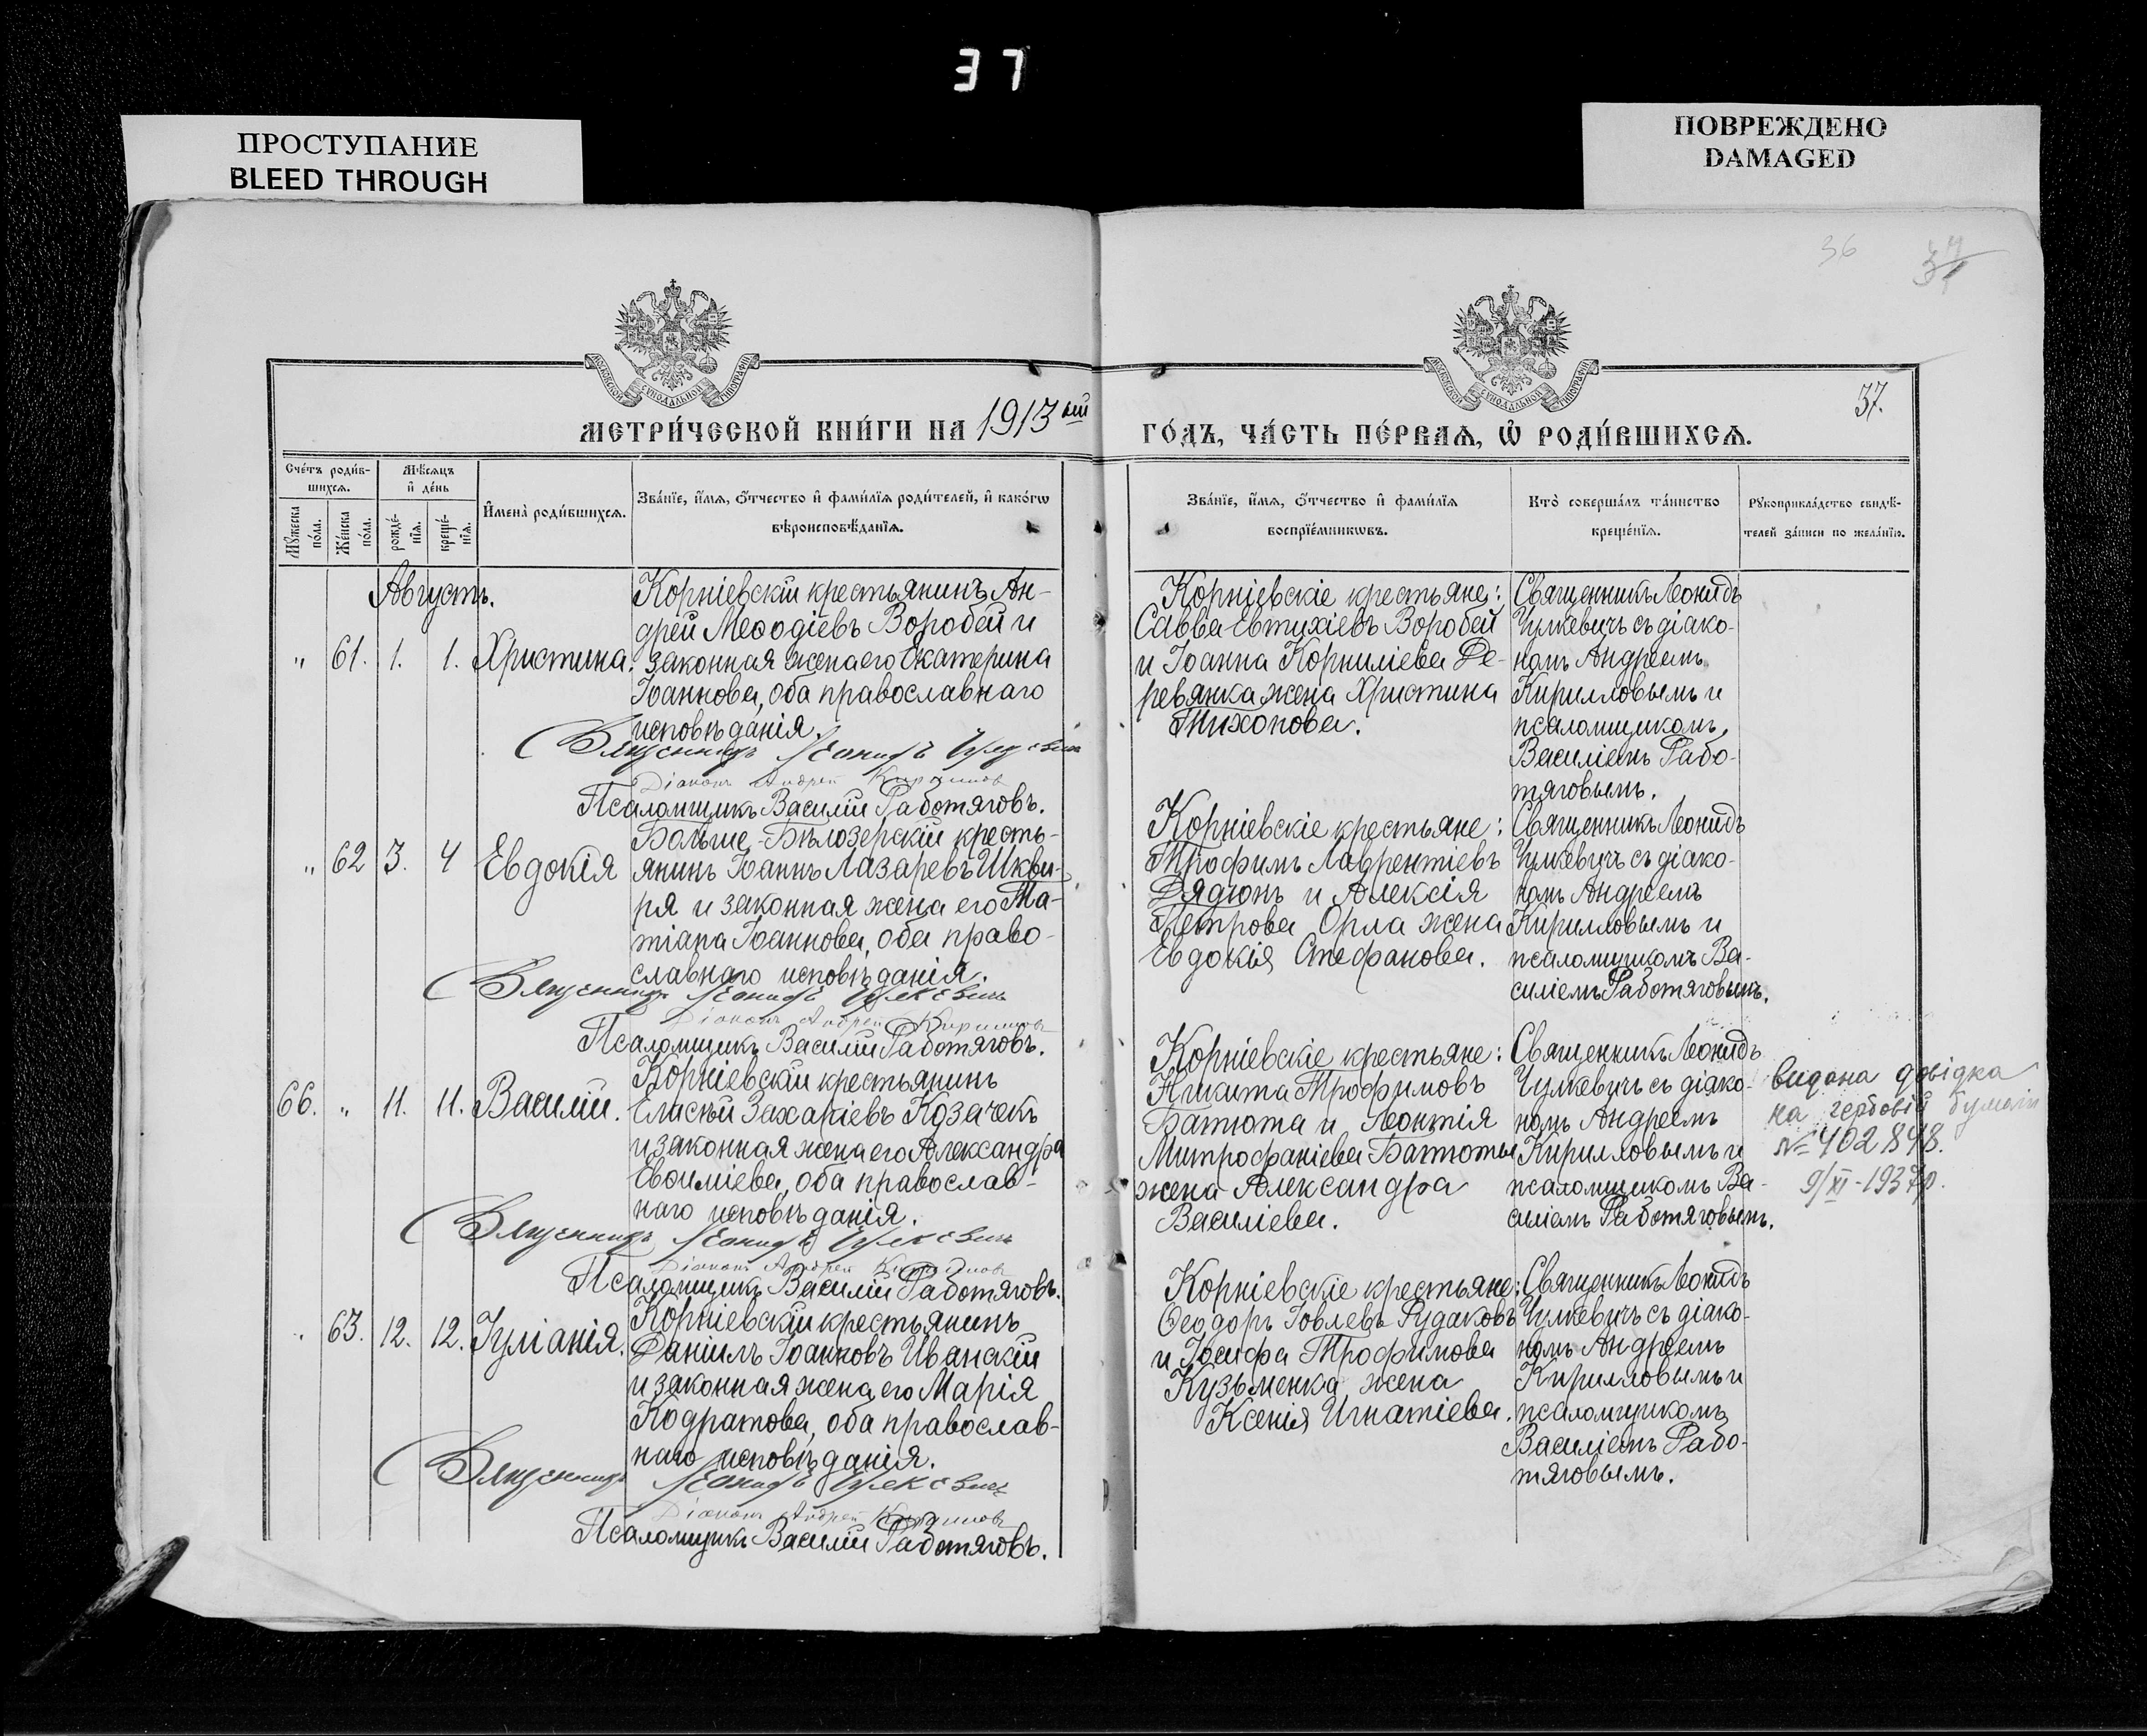 37
ПРОСТУПАНИЕ
BLEED THROUGH
ПОВРЕЖДЕНО
DAMAGED
36
37.
МОСКОВСКОЙ СѴНОДАЛЬНОЙ ТИПОГРАФІИ
МОСКОВСКОЙ СѴНОДАЛЬНОЙ ТИПОГРАФІИ
МЕТРИ́ЧЕСКОЙ КНИ́ГИ НА 1913ый
ГО́ДЪ, ЧА́СТЬ ПЕ́РВАѦ, Ѡ҆ РОДИ́ВШИХСѦ.
Сче́тъ роди́в-
шихсѧ.
Мѣ́сѧцъ
и҆ де́нь
Мꙋ́жеска
по́ла.
Же́нска
по́ла.
рожде́-
нїѧ.
креще́-
нїѧ.
И҆мена̀ роди́вшихсѧ.
Зва́нїе, и҆́мѧ, ѻ҆́тчество и҆ фами́лїѧ роди́телей, и҆ како́гѡ
вѣроисповѣ́данїѧ.
Зва́нїе, и҆́мѧ, ѻ҆́тчество и҆ фами́лїѧ
воспрїе́мникѡвъ.
Кто̀ соверша́лъ та́инство
креще́нїѧ.
Рꙋкоприкла́дство свидѣ́-
телей за́писи по жела́нїю.
Августъ.
" 61. 1. 1. Христина.
Корніевскій крестьянинъ Ан-
дрей Меѳодіевъ Воробей и
законная жена его Екатерина
Іоаннова, оба православнаго
исповѣданія.
Священникъ Леонидъ Чулкевичъ
Діаконъ Андрей Кирилловъ
Псаломщикъ Василій Работяговъ.
Корніевскіе крестьяне:
Савва Евтихіевъ Воробей
и Іоанна Корниліева Де-
ревянка жена Христина
Тихонова.
Священникъ Леонидъ
Чулкевичъ съ діако-
номъ Андреемъ
Кирилловымъ и
псаломщикомъ
Василіемъ Рабо-
тяговымъ.
" 62 3. 4 Евдокія
Больше-Бѣлозерскій кресть-
янинъ Іоаннъ Лазаревъ Шкви-
ря и законная жена его Та-
тіана Іоаннова, оба право-
славнаго исповѣданія.
Священникъ Леонидъ Чулкевичъ
Діаконъ Андрей Кирилловъ
Псаломщикъ Василій Работяговъ.
Корніевскіе крестьяне:
Трофимъ Лаврентіевъ
Дядюнъ и Алексія
Петрова Орла жена
Евдокія Стефанова.
Священникъ Леонидъ
Чулкевичъ съ діако-
номъ Андреемъ
Кирилловымъ и
псаломщикомъ Ва-
силіемъ Работяговымъ.
66. " 11. 11. Василій.
Корніевскій крестьянинъ
Елисѣй Захаріевъ Козачекъ
и законная жена его Александра
Евѳиміева, оба православ-
наго исповѣданія.
Священникъ Леонидъ Чулкевичъ
Діаконъ Андрей Кирилловъ
Псаломщикъ Василій Работяговъ.
Корніевскіе крестьяне:
Никита Трофимовъ
Батюта и Леонтія
Митрофаніева Батюты
жена Александра
Василіева.
Священникъ Леонидъ
Чулкевичъ съ діако-
номъ Андреемъ
Кирилловымъ и
псаломщикомъ Ва-
силіемъ Работяговымъ.
видана довідка
на гербовій бумазі
№ 402848.
9/XI-1937р.
" 63. 12. 12. Іуліанія.
Корніевскій крестьянинъ
Даніилъ Іоанновъ Иванскій
и законная жена его Марія
Кодратова, оба православ-
наго исповѣданія.
Священникъ Леонидъ Чулкевичъ
Діаконъ Андрей Кирилловъ
Псаломщикъ Василій Работяговъ.
Корніевскіе крестьяне:
Ѳеодоръ Іовлевъ Рудаковъ
и Іосифа Трофимова
Кузьменка жена
Ксенія Игнатіева.
Священникъ Леонидъ
Чулкевичъ съ діако-
номъ Андреемъ
Кирилловымъ и
псаломщикомъ
Василіемъ Рабо-
тяговымъ.